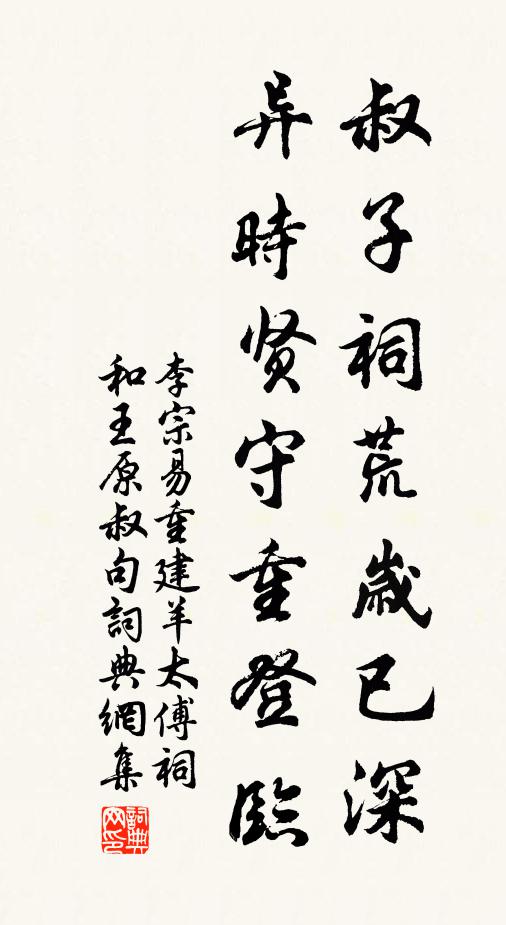 叔子祠荒岁已深
异時贤守重登臨
李宗易重建羊太傅祠
和王原叔句詞典網集
詞典网印